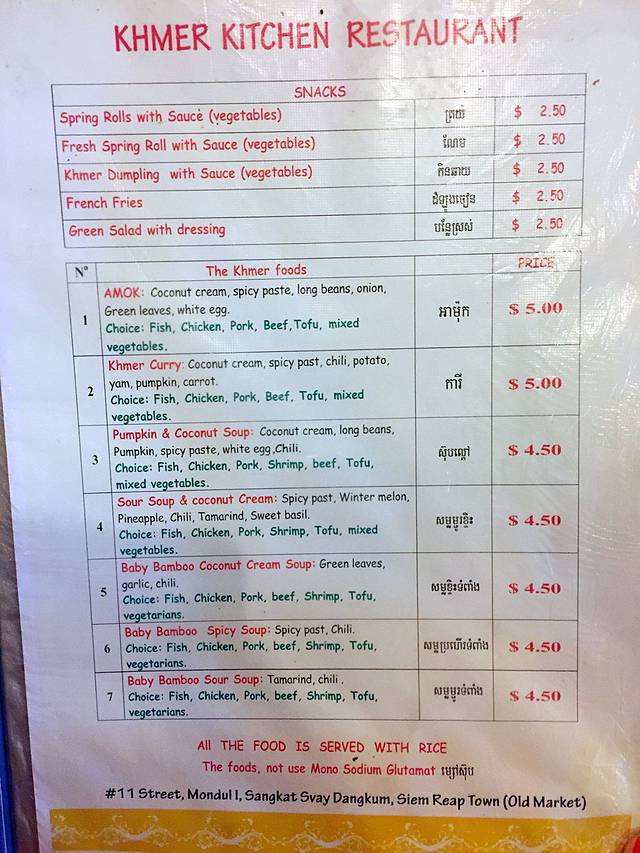 KHMER KITCHEN RESTAURANT
SNACKS
Spring Rolls with Sauce (vegetables) ត្រយ៉ $ 2.50
Fresh Spring Roll with Sauce (vegetables) ណែម $ 2.50
Khmer Dumpling with Sauce (vegetables) គិនឆាយ $ 2.50
French Fries ដំឡូងចៀន $ 2.50
Green Salad with dressing បន្លែស្រស់ $ 2.50
Nº The Khmer foods PRICE
1 AMOK: Coconut cream, spicy paste, long beans, onion,
Green leaves, white egg.
Choice: Fish, Chicken, Pork, Beef, Tofu, mixed
vegetables.
អាម៉ុក $ 5.00
2 Khmer Curry: Coconut cream, spicy past, chili, potato,
yam, pumpkin, carrot.
Choice: Fish, Chicken, Pork, Beef, Tofu, mixed
vegetables.
ការី $ 5.00
3 Pumpkin & Coconut Soup: Coconut cream, long beans,
Pumpkin, spicy paste, white egg,Chili.
Choice: Fish, Chicken, Pork, Shrimp, beef, Tofu,
mixed vegetables.
ស៊ុបល្ពៅ $ 4.50
4 Sour Soup & coconut Cream: Spicy past, Winter melon,
Pineapple, Chili, Tamarind, Sweet basil.
Choice: Fish, Chicken, Pork, Shrimp, Tofu, mixed
vegetables.
សម្លម្ជូរខ្ទិះ $ 4.50
5 Baby Bamboo Coconut Cream Soup: Green leaves,
garlic, chili.
Choice: Fish, Chicken, Pork, beef, Shrimp, Tofu,
vegetarians.
សម្លខ្ទិះទំពាំង $ 4.50
6 Baby Bamboo Spicy Soup: Spicy past, Chili.
Choice: Fish, Chicken, Pork, beef, Shrimp, Tofu,
vegetarians.
សម្លប្រហើរទំពាំង $ 4.50
7 Baby Bamboo Sour Soup: Tamarind, chili .
Choice: Fish, Chicken, Pork, beef, Shrimp, Tofu,
vegetarians.
សម្លម្ជូរទំពាំង $ 4.50
All THE FOOD IS SERVED WITH RICE
The foods, not use Mono Sodium Glutamat ម្សៅស៊ុប
#11 Street, Mondul I, Sangkat Svay Dangkum, Siem Reap Town (Old Market)